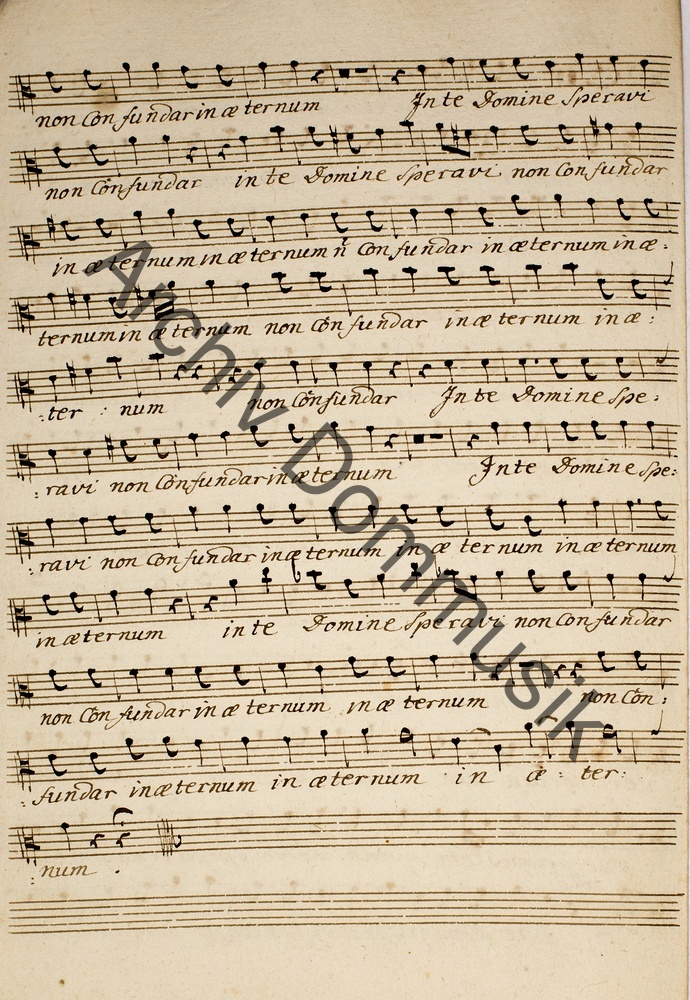 non Confundar in æternum Jn te Domine Speravi
non Confundar in te Domine Speravi non Confundar
in æternum in æternum n̄ Confundar in æternum in æ:
ternum in æternum non Confundar in æternum in æ:
:ter : num non Confundar Jn te Domine Spe:
:ravi non Confundar in æternum Jn te Domine Spe:
:ravi non Confundar in æternum in æternum in æternum
in æternum in te Domine Speravi non Confundar
non Confundar in æternum in æternum non Con:
:fundar in æternum in æternum in æ: ter:
:num.
Archiv Dommusik